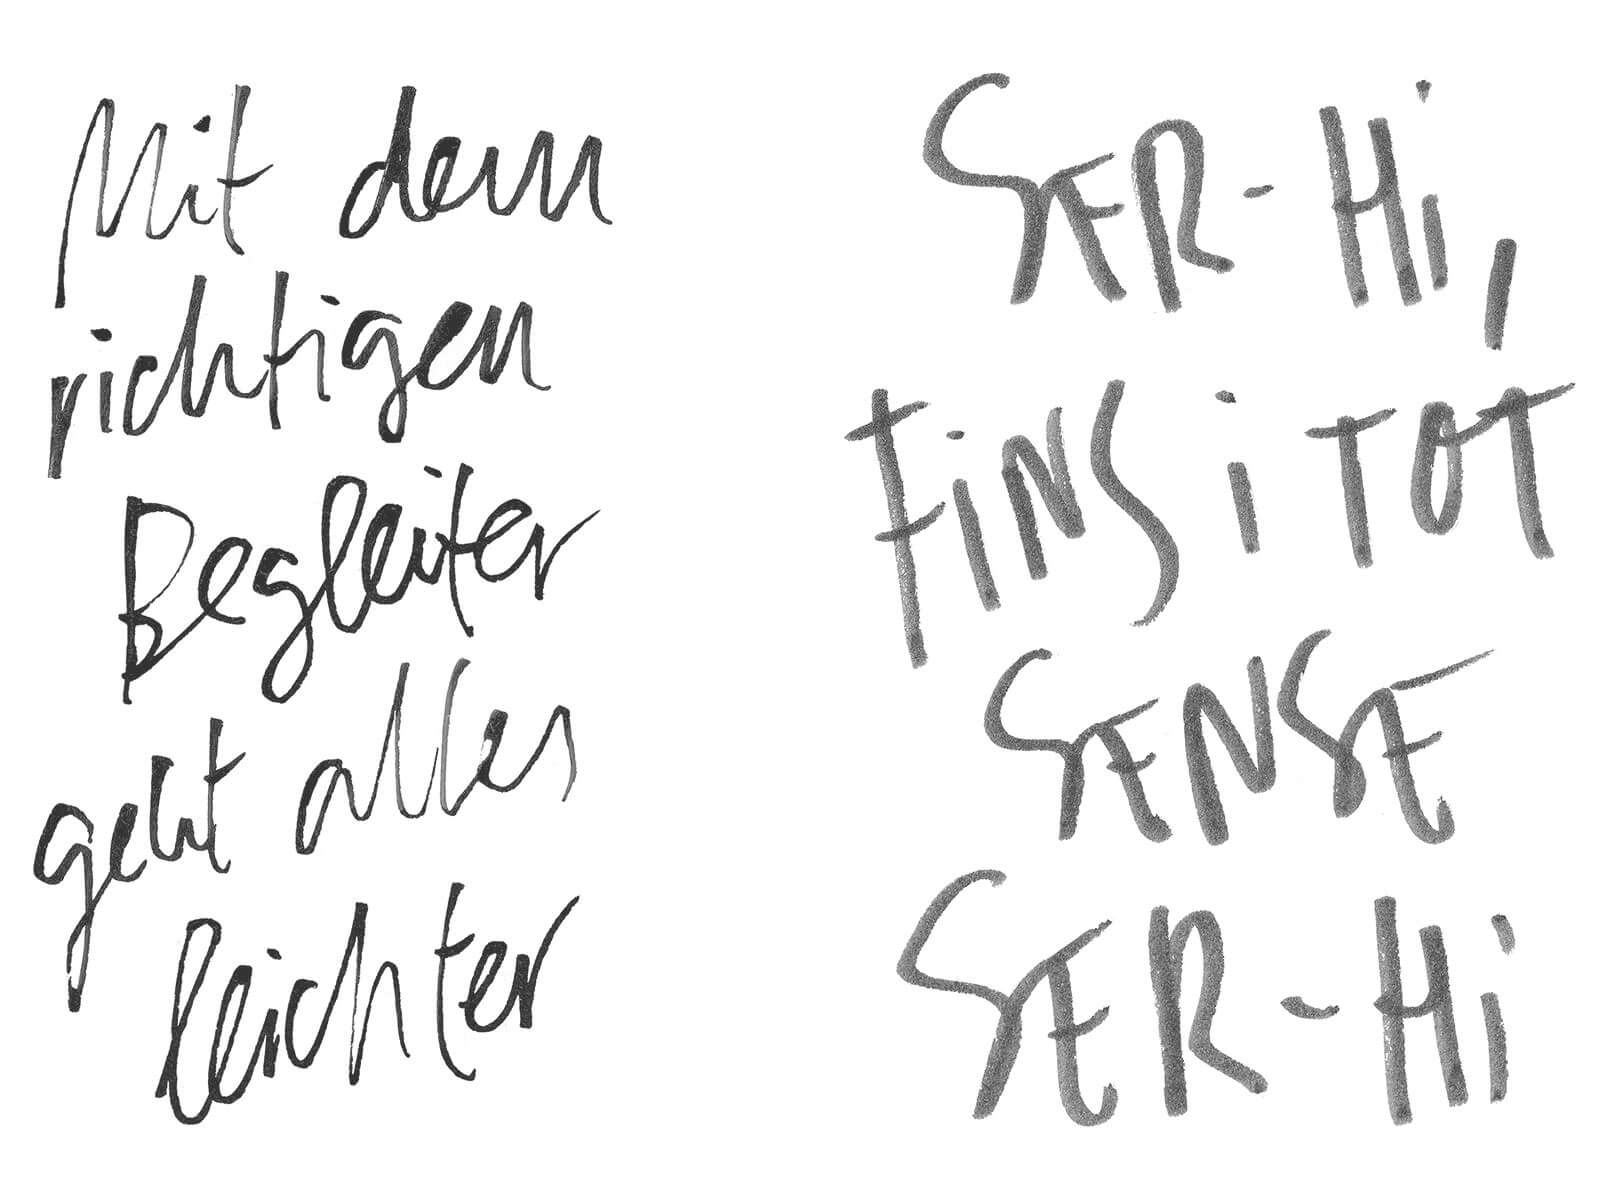 Mit dem
richtigen
Begleiter
geht alles
leichter
SER-Hi,
FiNS i TOT
SENSE
SER-Hi